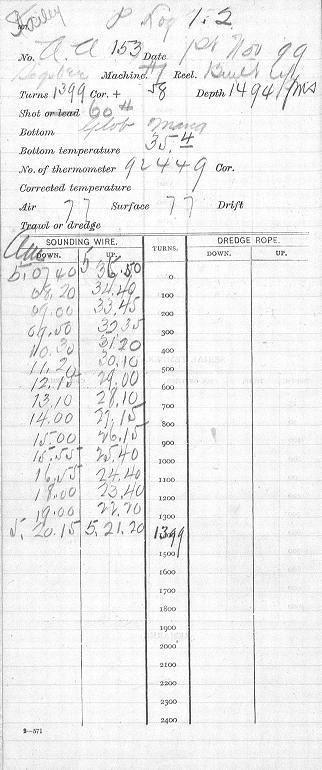 P Log 1.2
No. A.A 153 Date Nov 99
Machine. Reel. Built Up
Turns 1399 Cor. + 58 Depth 1494 fms
Shot or lead 60 #
Bottom Glob Mang
Bottom temperature 35.4
No. of thermometer 92449 Cor.
Corrected temperature
Air 77 Surface 77 Drift
Trawl or dredge
SOUNDING WIRE. TURNS. DREDGE ROPE.
DOWN. UP. DOWN. UP.
5.07 40 5 36.50 0
08.20 34.40 100
09.00 33.45 200
09.50 32 35 300
10.30 31.20 400
11.20 30.10 500
12.15 29.00 600
13.10 28.10 700
14.00 27.15 800
15.00 26.15 900
15.55 25.40 1000
16.55 24.40 1100
18.00 23.40 1200
19.00 22.20 1300
5. 20.15 5.21.20 1399
1500
1600
1700
1800
1900
2000
2100
2200
2300
2400
2—571